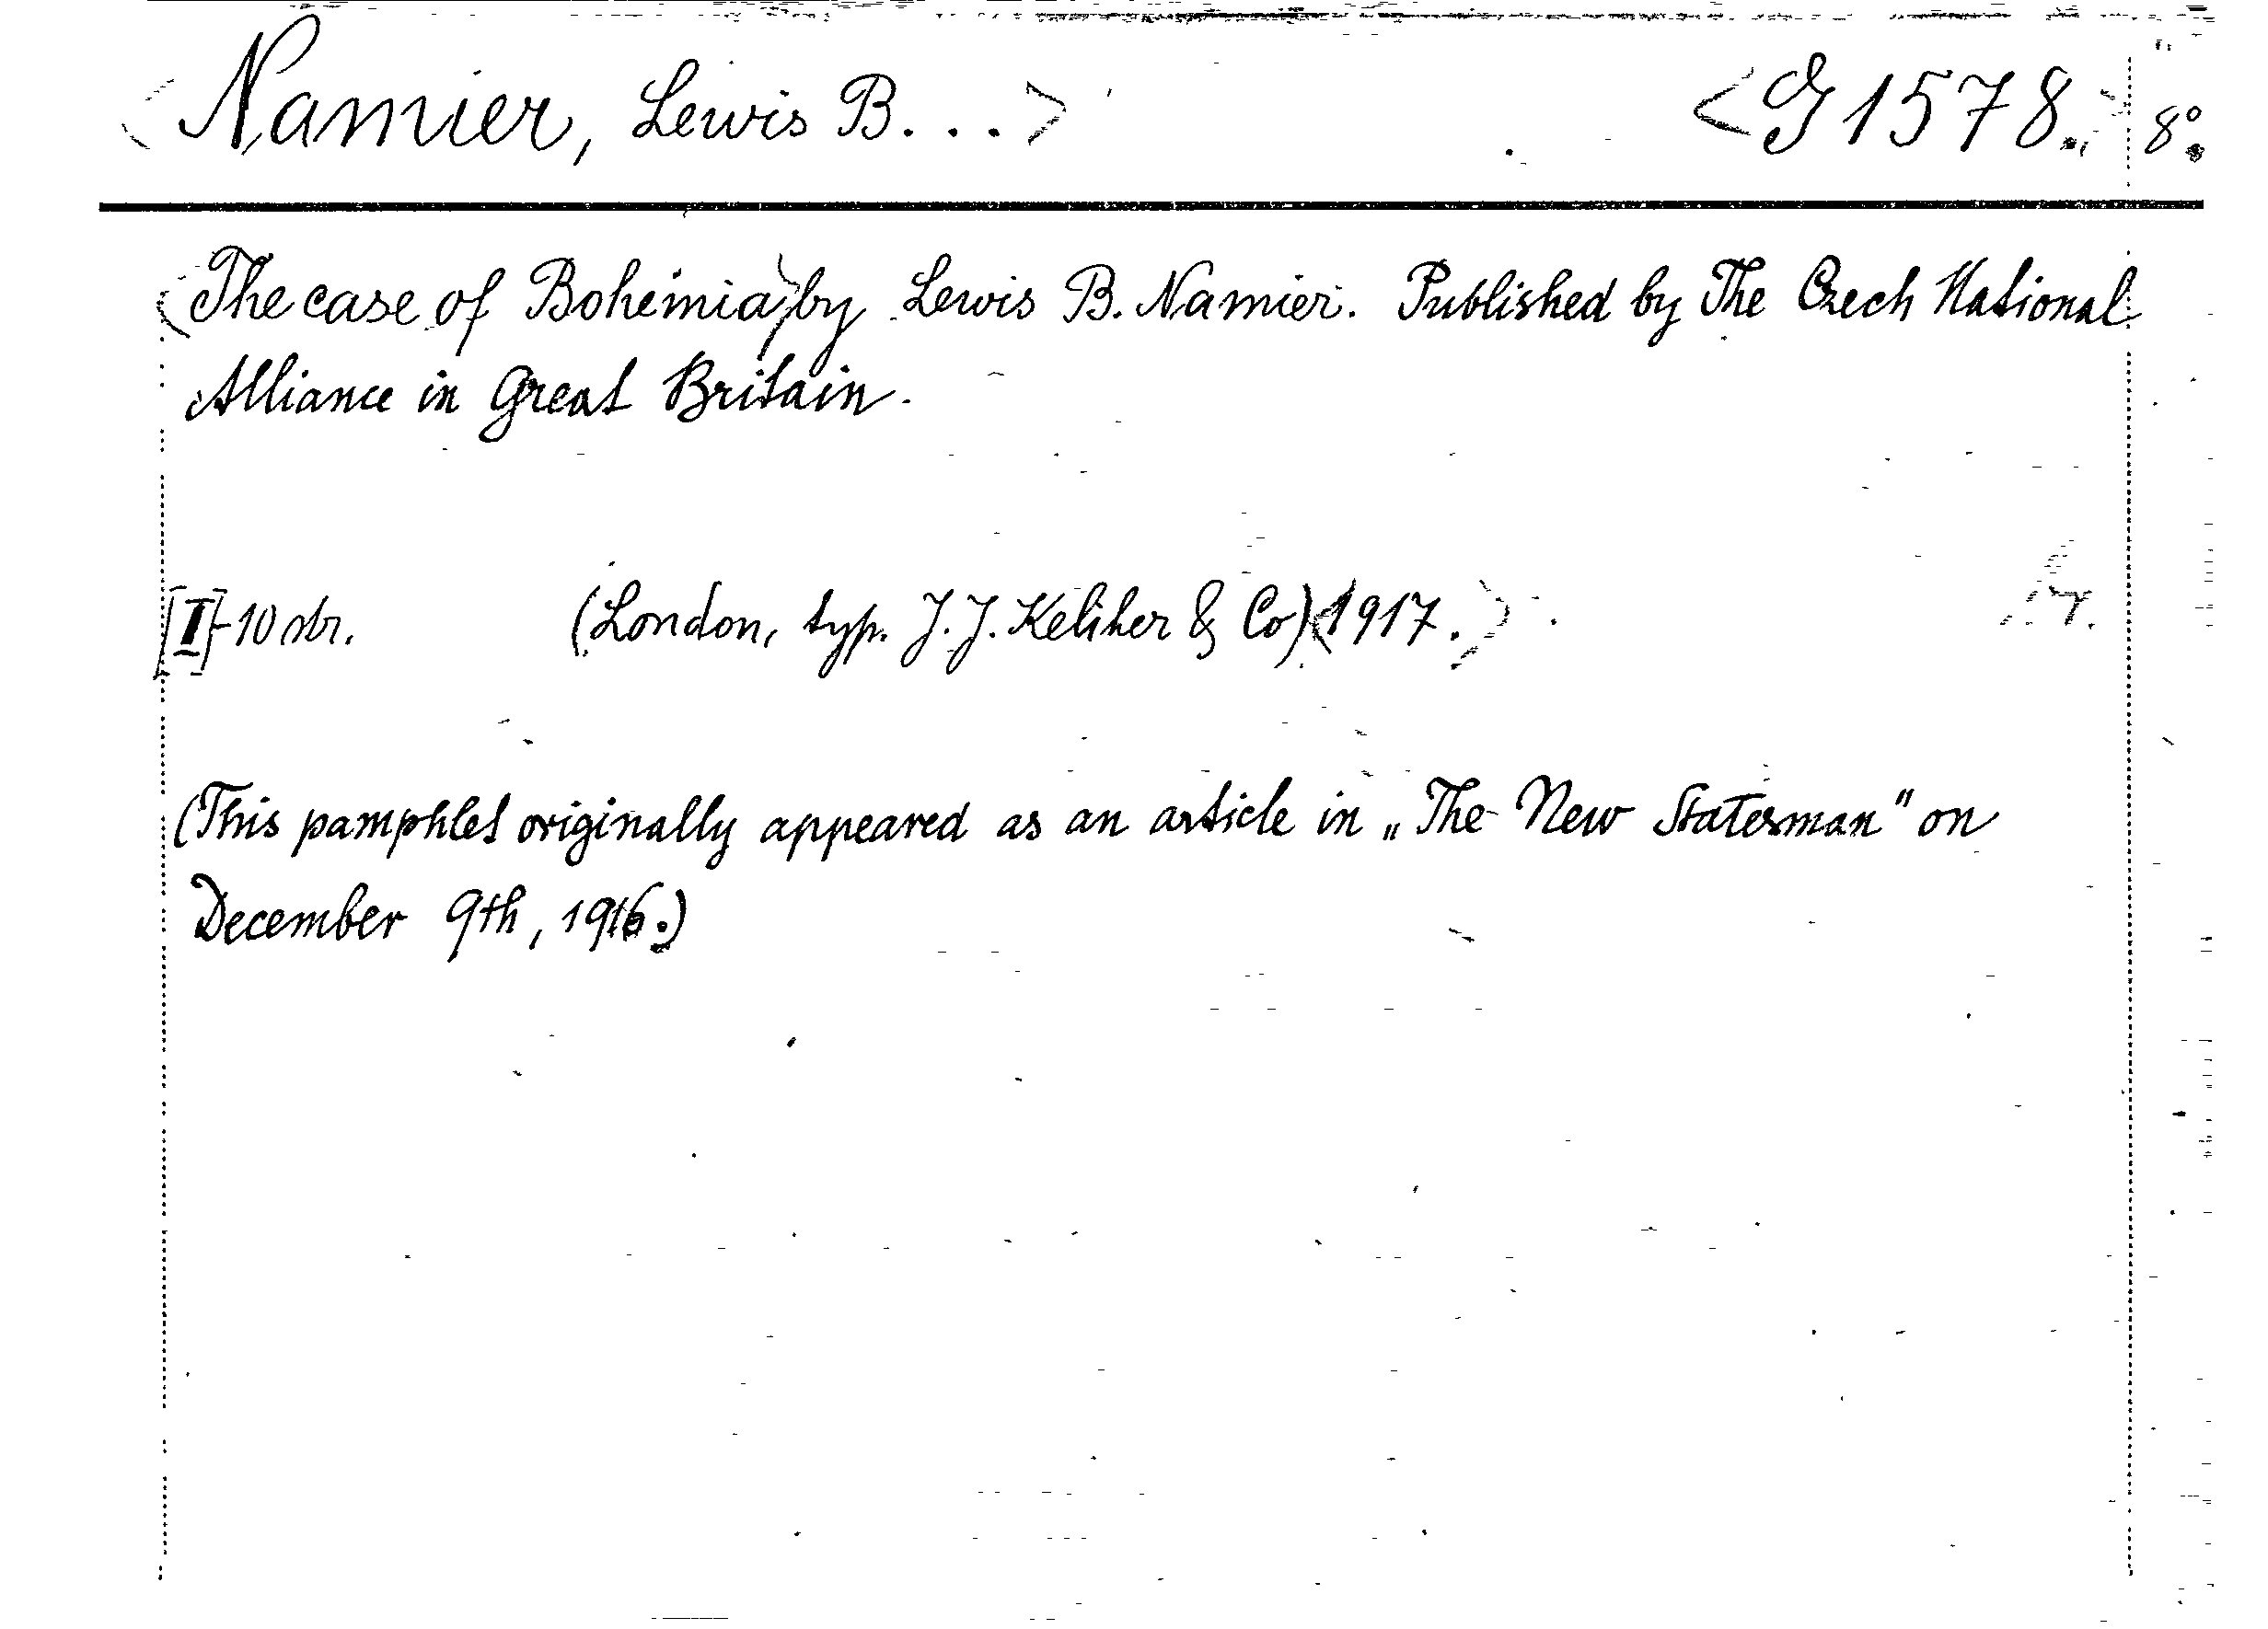 <Namier, Lewis B...> <G 1578.> 8°.
<The case of Bohemia> by Lewis B. Namier. Published by The Czech National
Alliance in Great Britain.
[I]-10 str. (London, typ. J. J. Keliher & Co) <1917.>
(This pamphlet originally appeared as an article in „The New Statesman" on
December 9th, 1916.)